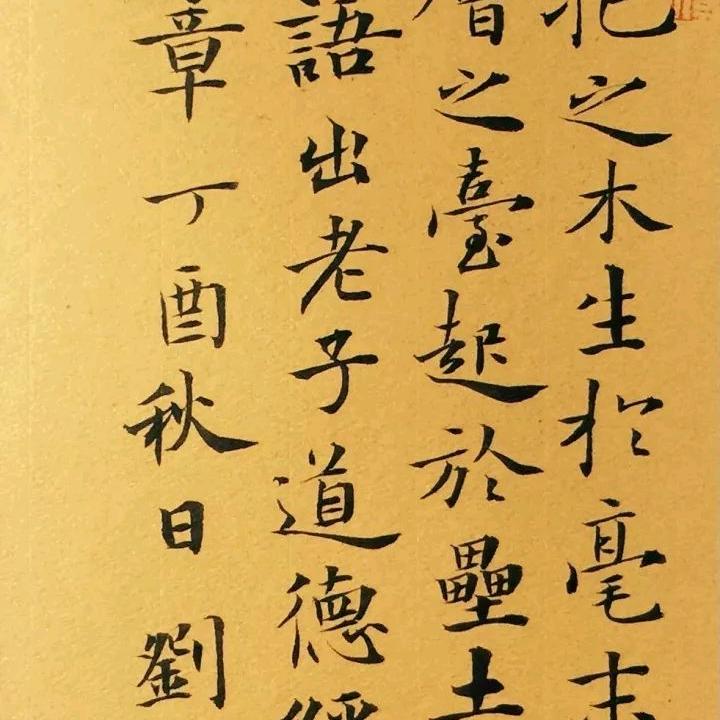 之木生於毫末
層之臺起於壘土
語出老子道德經
章丁酉秋日劉